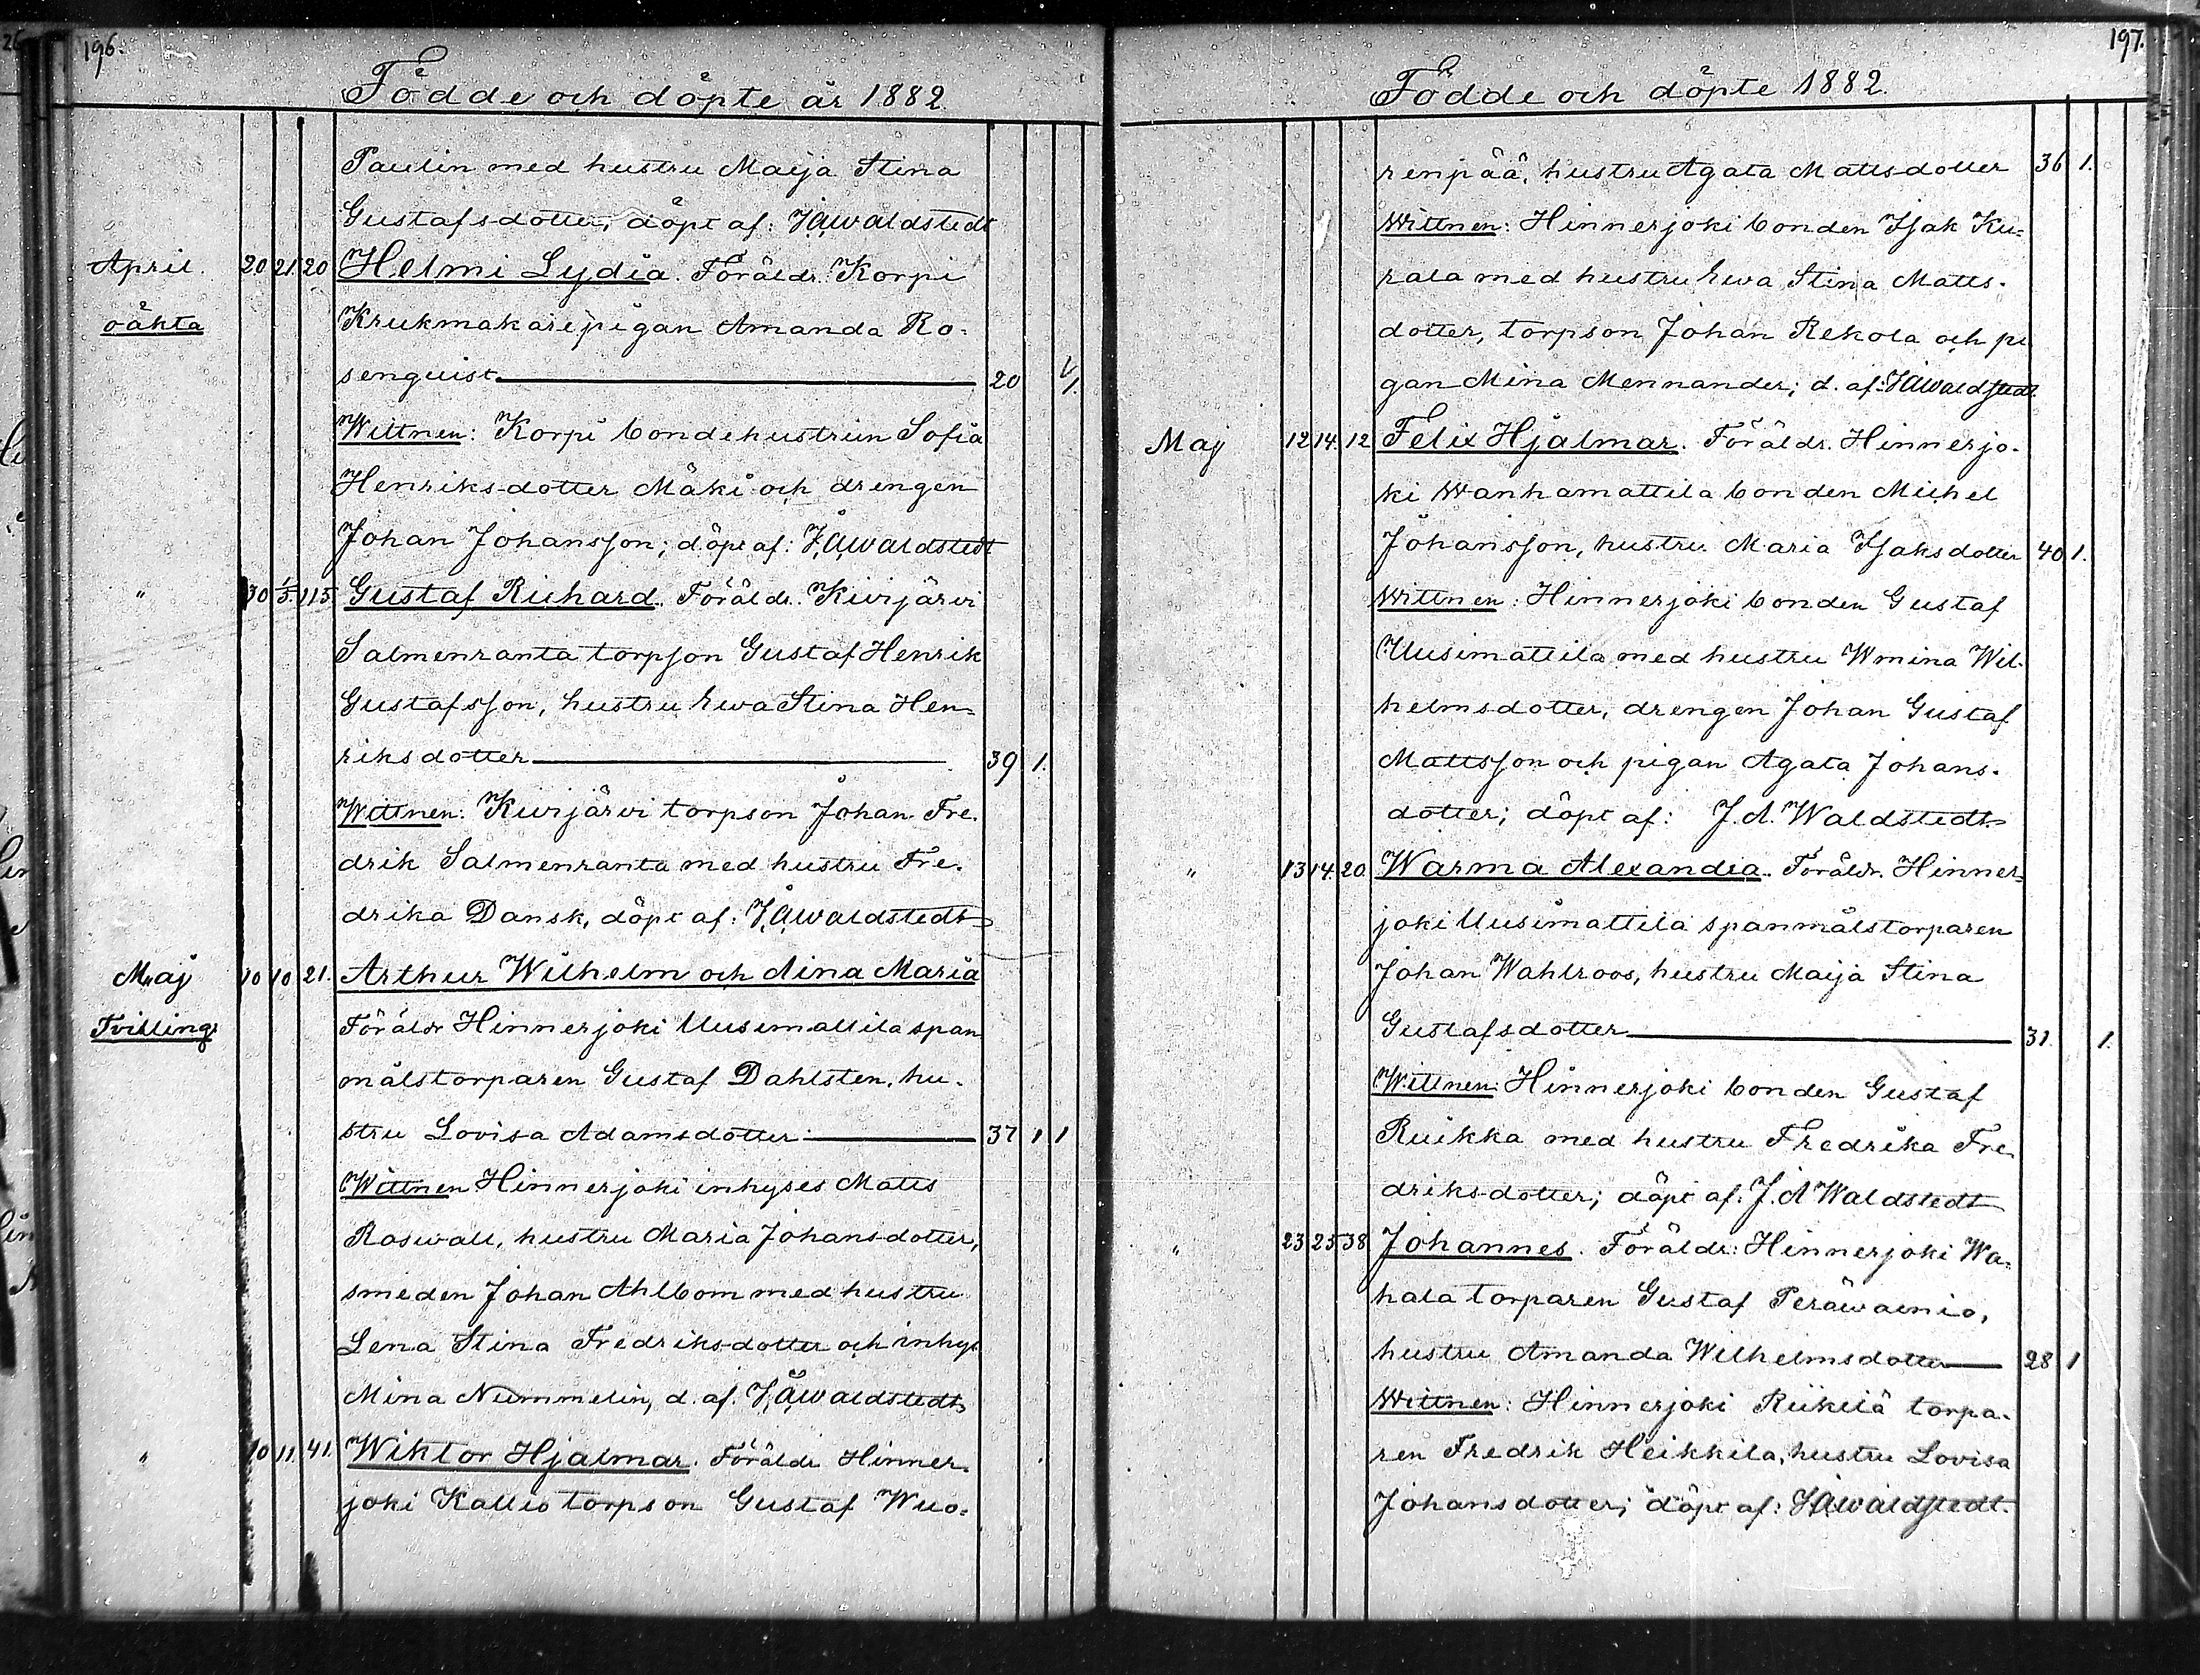 196.
Födde och döpte år 1882.
Paulin med hustru Maija Stina
Gustafsdotter, döpt af: J.A.Waldstedt
April. 20 21. 20 Helmi Lydia. Föräldr. Korpi
oäkta Krukmakaripigan Amanda Ro-
senquist 20 1.
Wittnen: Korpi bondehustrun Sofia
Henriksdotter Mäki och drengen
Johan Johansson; döpt af: J.A.Waldstedt
" 30 1/5. 115 Gustaf Richard. Föräldr. Kivijärvi
Salmenranta torpson Gustaf Henrik
Gustafsson, hustru Ewa Stina Hen-
riksdotter 39 1.
Wittnen: Kivijärvi torpson Johan Fre-
drik Salmenranta med hustru Fre-
drika Dansk, döpt af: J.A.Waldstedt
Maj 10 10 21. Arthur Wilhelm och Aina Maria
Tvilling Föräldr Hinnerjoki Uusimattila span
målstorparen Gustaf Dahlsten, hu-
stru Lovisa Adamsdotter 37 1 1
Wittnen Hinnerjoki inhyses Matts
Roswall, hustru Maria Johansdotter,
smeden Johan Ahlbom med hustru
Lena Stina Fredriksdotter och inhys
Mina Nummelin, d. af. J.A.Waldstedt
" 10 11. 41. Wiktor Hjalmar. Föräldr Hinner-
joki Kallio torpson Gustaf Wuo-
197.
Födde och döpte 1882.
renpää, hustru Agata Mattsdotter 36 1.
Wittnen: Hinnerjoki bonden Isak Ku-
rala med hustru Ewa Stina Matts-
dotter, torpson Johan Rekola och pi
gan Mina Mennander; d. af: J.A.Waldstedt
Maj 12 14. 12 Felix Hjalmar. Föräldr. Hinnerjo-
ki Wanhamattila bonden Michel
Johansson, hustru Maria Isaksdotter 40 1.
Wittnen: Hinnerjoki bonden Gustaf
Uusimattila med hustru Wmina Wil-
helmsdotter, drengen Johan Gustaf
Mattsson och pigan Agata Johans-
dotter; döpt af: J.A. Waldstedt
" 13 14. 20 Warma Alexandra. Föräldr. Hinner-
joki Uusimattila spanmålstorparen
Johan Wahlroos, hustru Maija Stina
Gustafsdotter 31. 1.
Wittnen: Hinnerjoki bonden Gustaf
Ruikka med hustru Fredrika Fre-
driksdotter; döpt af: J.A Waldstedt
" 23 25 38 Johannes. Föräldr: Hinnerjoki Wa-
hala torparen Gustaf Peräwainio,
hustru Amanda Wilhelmsdotter 28 1
Wittnen: Hinnerjoki Riikilä torpa-
ren Fredrik Heikkila, hustru Lovisa
Johansdotter; döpt af: J.A.Waldstedt.